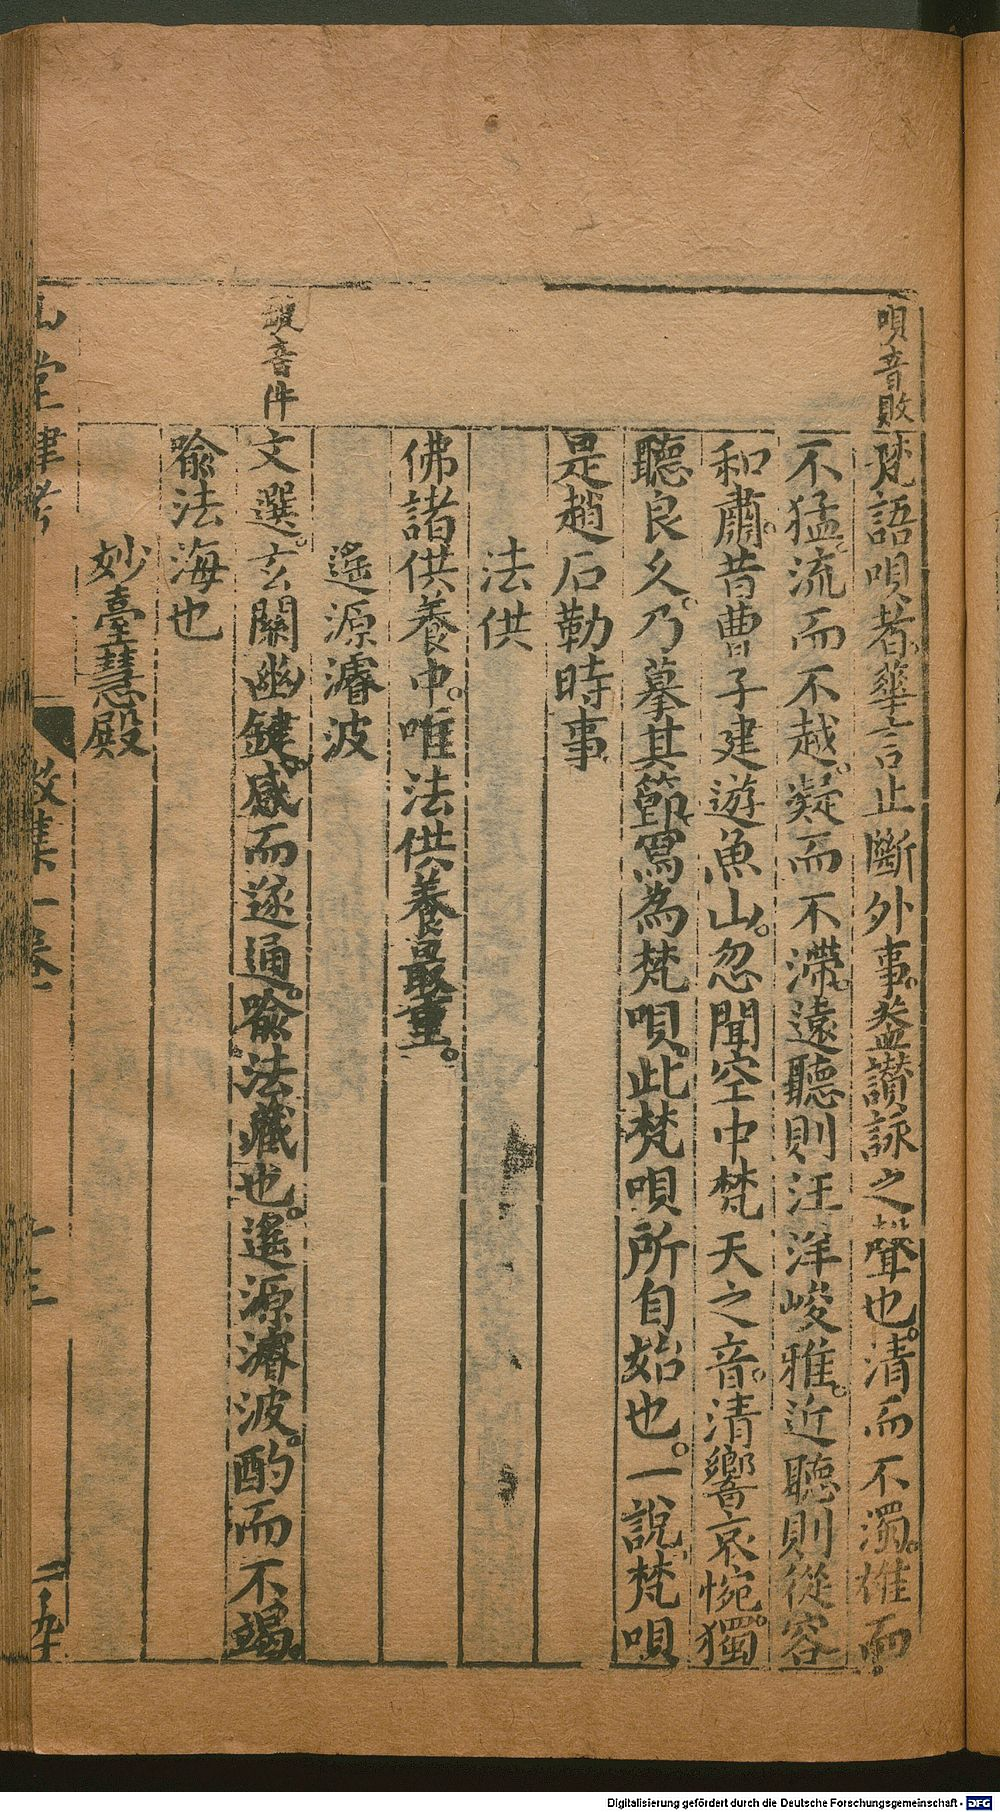 唄音敗
梵語唄者。華言止斷外事。盖讃詠之聲也。清而不濁。雄而
不猛。流而不越。凝而不滯。遠聽則汪洋峻雅。近聽則從容
和肅。昔曹子建遊魚山。忽聞空中梵天之音。清響哀惋。獨
聽良久。乃摹其節。寫為梵唄。此梵唄所自始也。一說梵唄
是趙石勒時事
法供
佛諸供養中。唯法供養最重。
遙源濬波
鍵音件
文選。玄關幽鍵。感而遂通。喻法藏也。遙源濬波。酌而不竭。
喻法海也
妙臺慧殿
山堂肆考
徵集一卷
十三
Digitalisierung gefördert durch die Deutsche Forschungsgemeinschaft - DFG